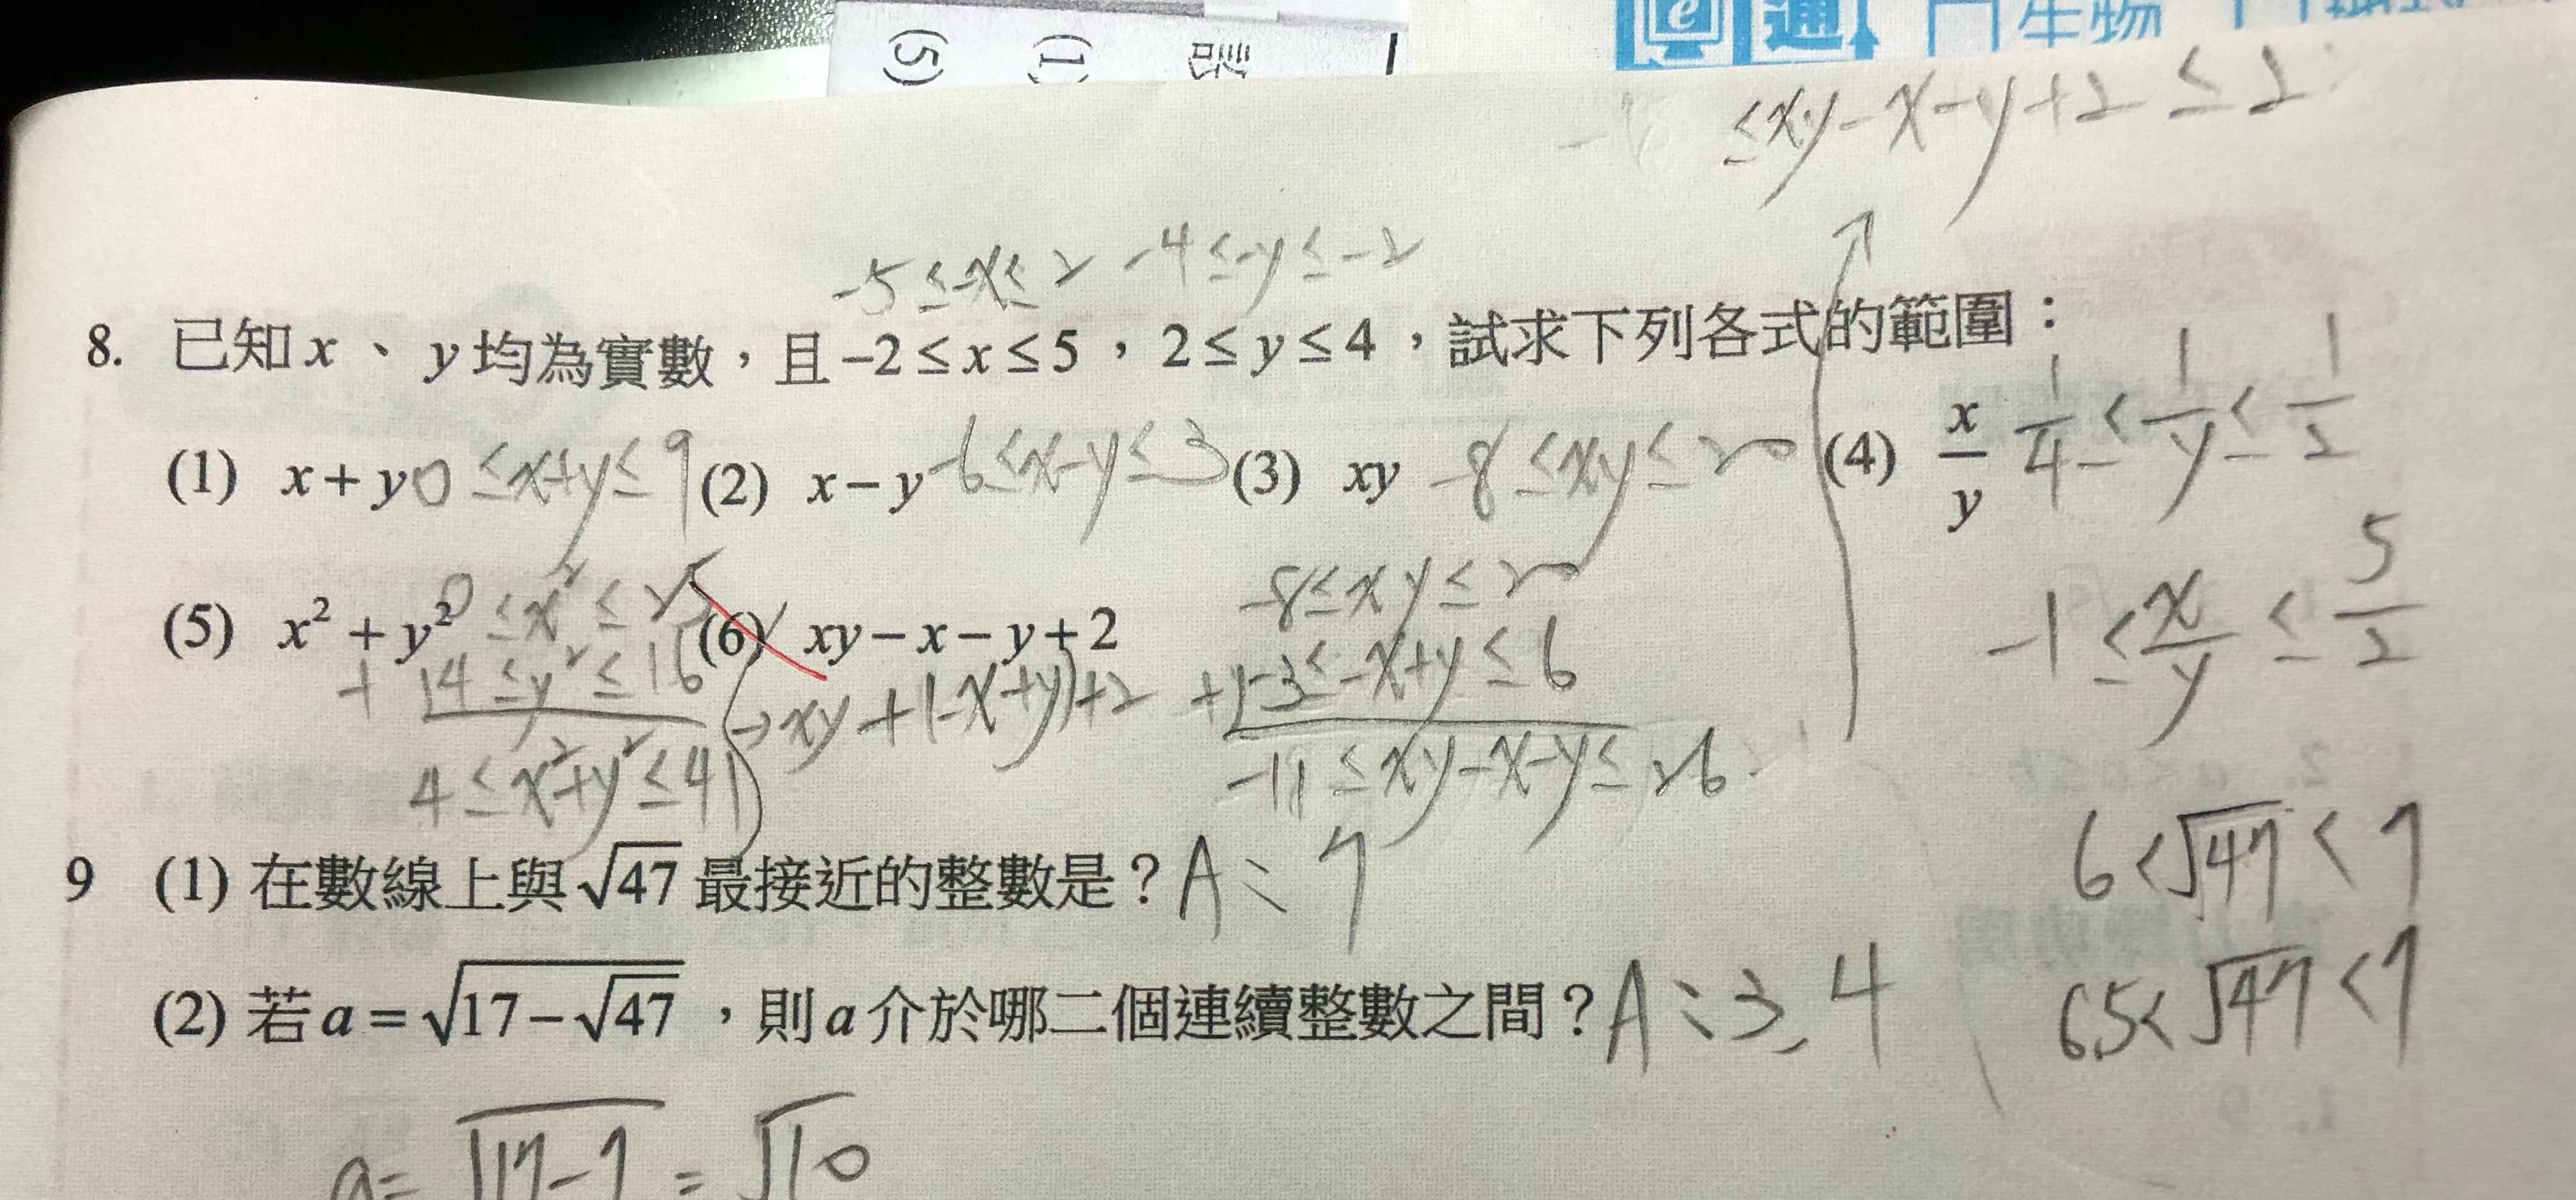 (5) (1)
e 通 生物
≤xy-x-y+2 ≤ 2
-5 ≤-x≤ 2 -4≤-y≤-2
8. 已知 x 、 y 均為實數，且 -2 ≤ x ≤ 5 ，2 ≤ y ≤ 4 ，試求下列各式的範圍：
(1) x+y 0 ≤x+y≤ 9 (2) x-y -6≤x-y≤ 3 (3) xy -8 ≤xy≤ 20 (4) x/y 1/4 ≤ 1/y ≤ 1/2
-1 ≤ x/y ≤ 5/2
(5) x²+y² 0 ≤x²≤ 25 (6) xy-x-y+2 -8≤xy≤20
+) 4≤y²≤16 → xy+(-x+y)+2 +) -3≤-x+y≤6
4≤x²+y²≤41 -11≤xy-x-y≤26
9 (1) 在數線上與√47 最接近的整數是？A：7 6<√47<7
(2) 若a=√(17-√47) ，則a介於哪二個連續整數之間？A：3,4 6.5<√47<7
a=√17-7 = √10